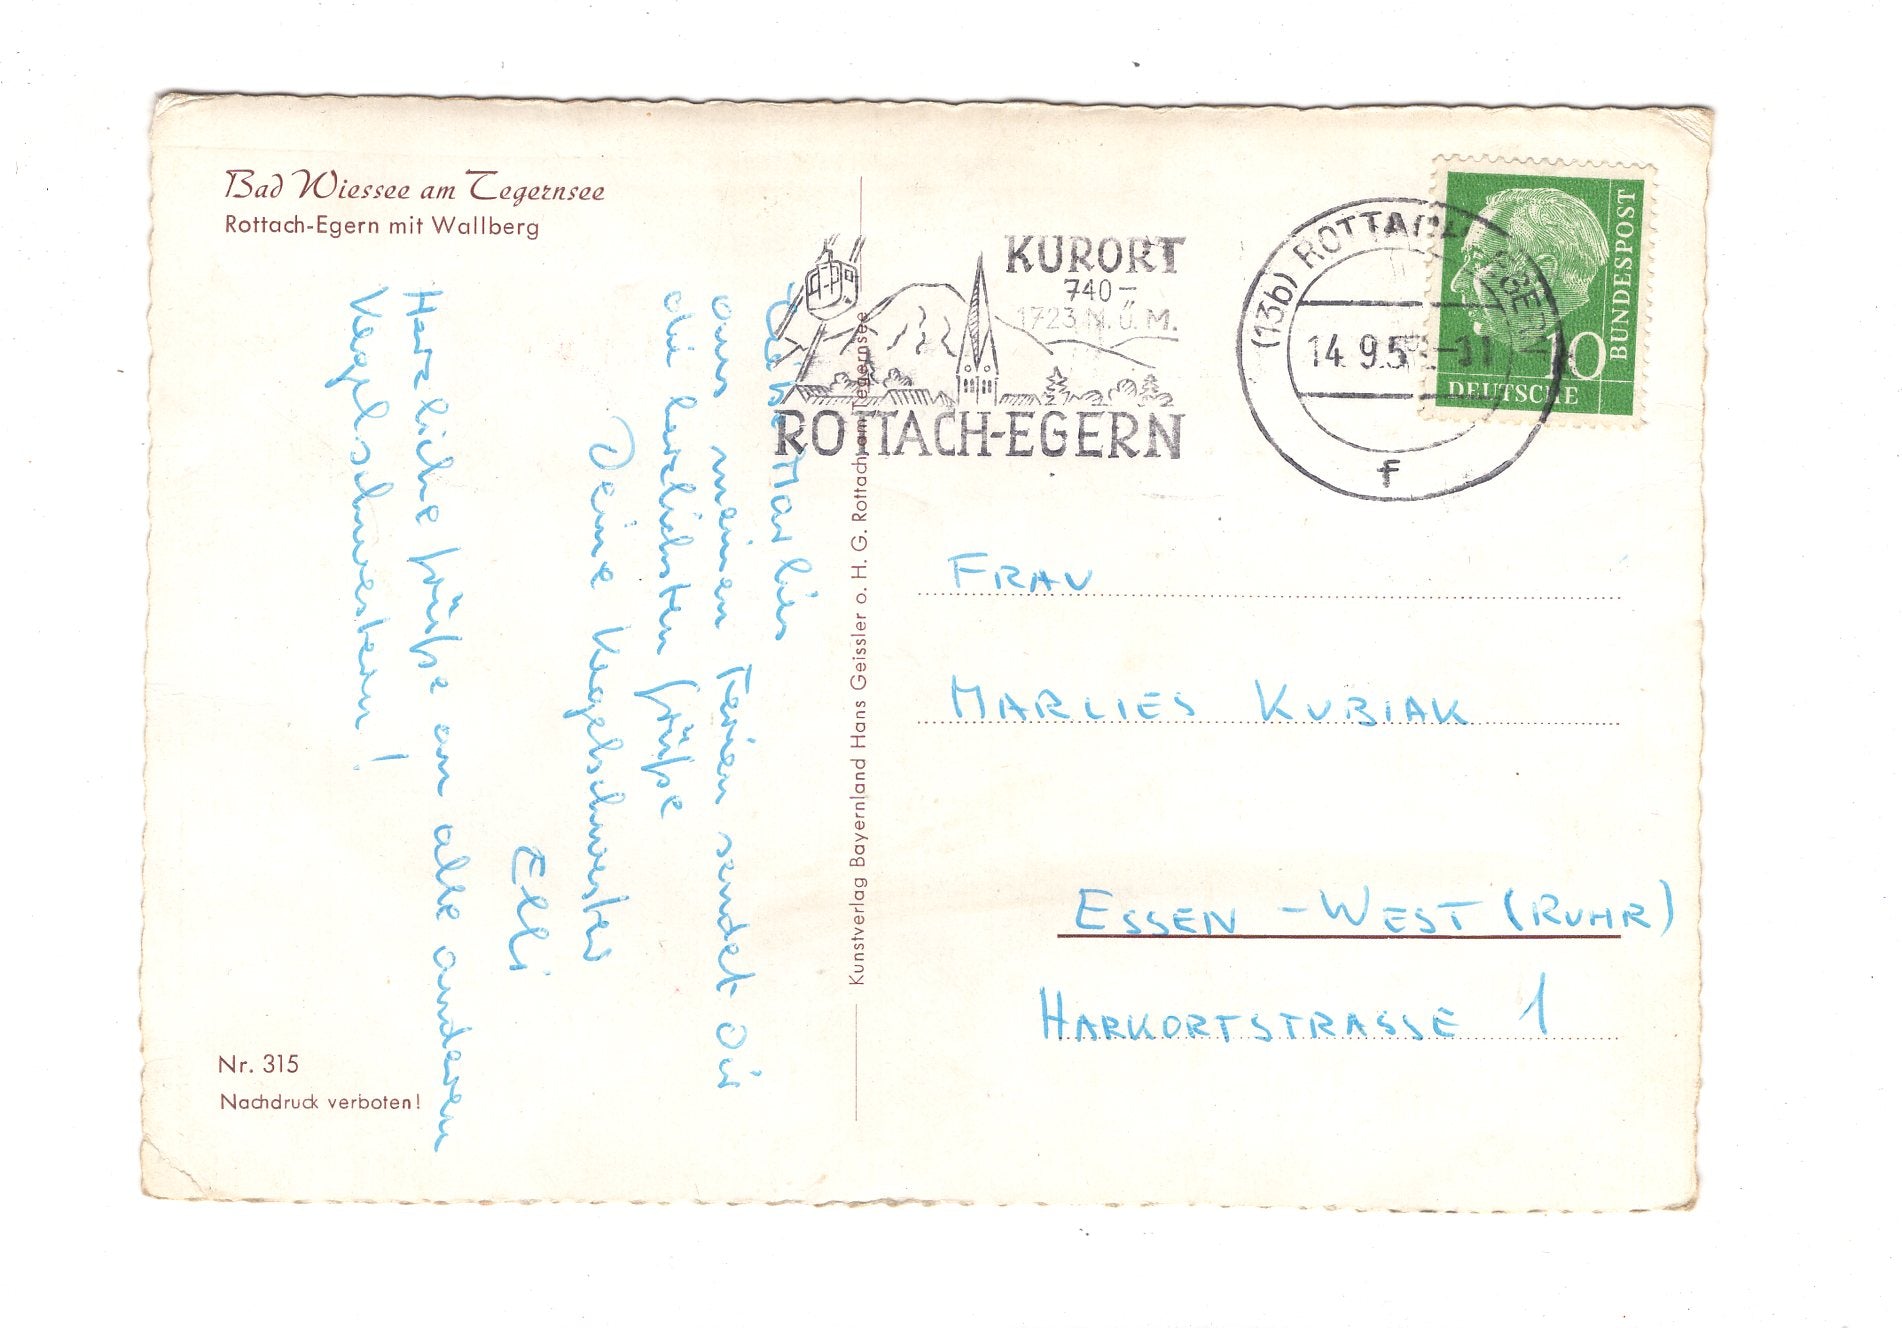 Bad Wiessee am Tegernsee
Rottach-Egern mit Wallberg
Liebe Marlies
aus meinen Ferien sendet Dir
die herzlichsten Grüße
Deine Kegelschwester
Elli
Herzliche Grüße an alle anderen
Kegelschwestern!
Nr. 315
Nachdruck verboten!
Kunstverlag Bayernland Hans Geissler o. H. G. Rottach am Tegernsee
KURORT
740-
1723 N.Ü.M.
ROTTACH-EGERN
(13b) ROTTACH-EGERN
14.9.5
f
DEUTSCHE
BUNDESPOST
10
FRAU
MARLIES KUBIAK
ESSEN-WEST (RUHR)
HARKORTSTRASSE 1